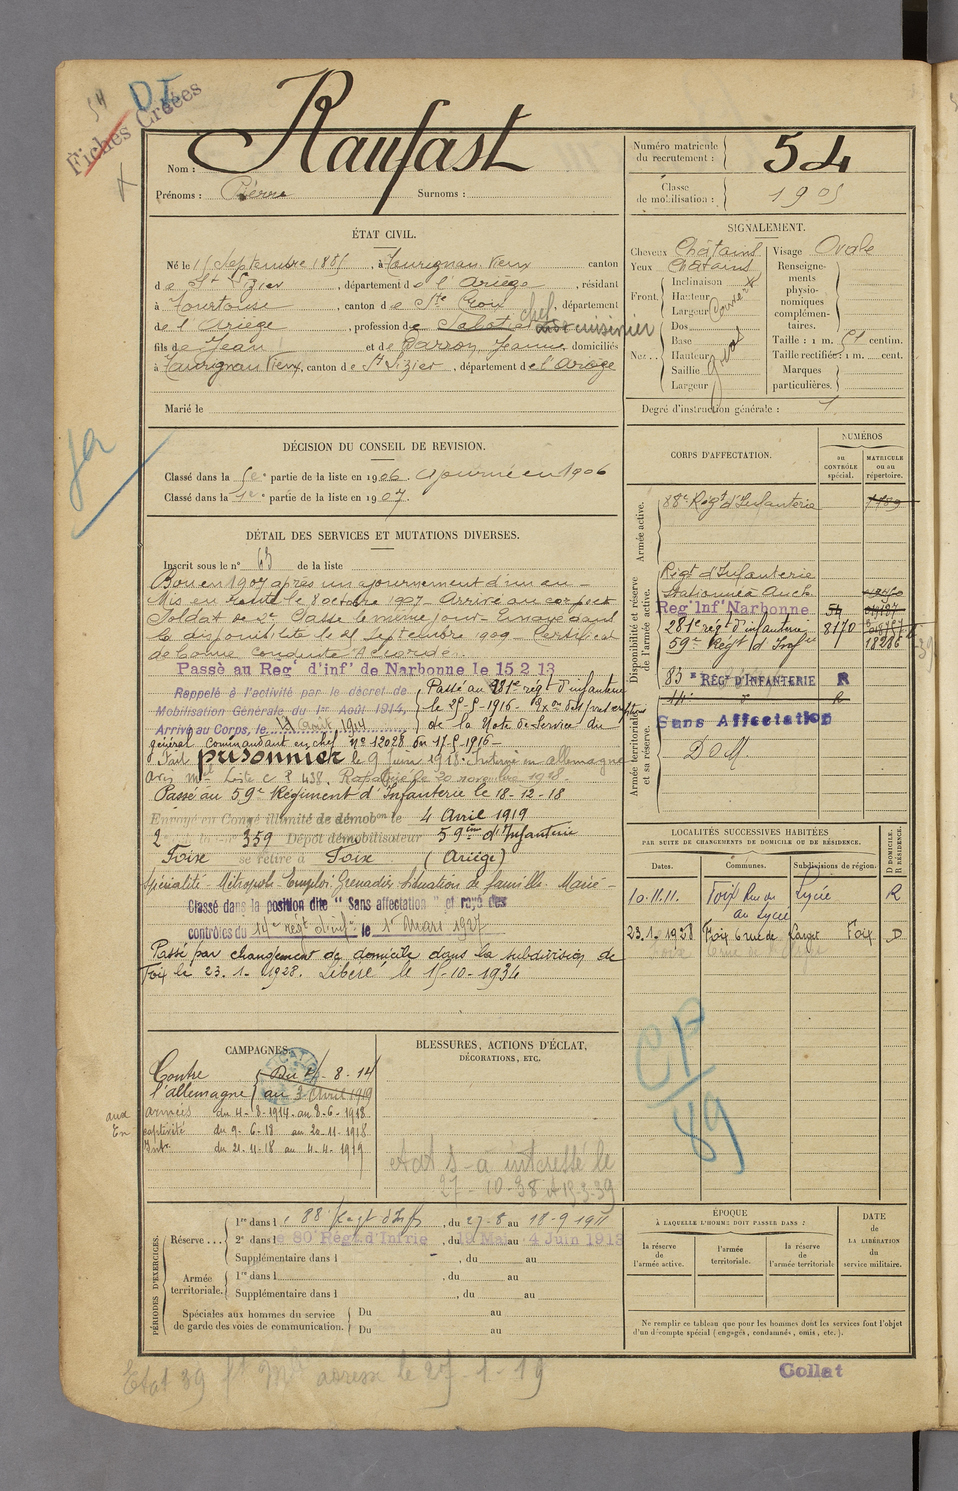 54 DI
Fiches Créées
Nom : Raufast
Prénoms : Pierre Surnoms :
Numéro matricule du recrutement : 54
Classe de mobilisation : 1905
ÉTAT CIVIL.
Né le 15 Septembre 1885, à Taurignan Vieux canton
de St Lizier, département de l'Ariège, résidant
à Tourtouse, canton de Ste Croix, département
de l'Ariège, profession de Sabotier chef cuisinier
fils de Jean et de Barron Jeanne domiciliés
à Taurignan Vieux, canton de St Lizier, département de l'Ariège
Marié le
SIGNALEMENT.
Cheveux Châtains Visage Ovale
Yeux Châtains
Front. Inclinaison
Hauteur
Largeur
Nez... Dos
Base
Hauteur
Saillie
Largeur
Renseignements physionomiques complémentaires.
Taille : 1 m. 51 centim.
Taille rectifiée : 1 m. cent.
Marques particulières.
Degré d'instruction générale : 1
DÉCISION DU CONSEIL DE REVISION.
Classé dans la 5e partie de la liste en 1906. Ajourné en 1906
Classé dans la 1re partie de la liste en 1907.
DÉTAIL DES SERVICES ET MUTATIONS DIVERSES.
Inscrit sous le n° 63 de la liste
Bon en 1907 après un ajournement d'un an -
Mis en route le 8 octobre 1907 - Arrivé au corps et
Soldat de 2e Classe le même jour - Envoyé dans
la disponibilité le 25 Septembre 1909 - Certificat
de bonne conduite Accordé -
Passé au Reg' d'inf' de Narbonne le 15 2 13
Rappelé à l'activité par le décret de
Mobilisation Générale du 1er Août 1914,
Arrivé au Corps, le Août 1914
Passé au 281e regt d'infanterie
le 25-5-1916 -
de la Note de Service du
général Commandant en chef N° 12028 du 17-5-1916 -
Fait prisonnier le 9 Juin 1918. Interné en allemagne
avis mel Liste C P 438. Rapatrié le 20 novembre 1918.
Passé au 59e Régiment d'Infanterie le 18-12-18
Envoyé en Congé illimité de démobon le 4 Avril 1919
359 Dépôt démobilisateur 59ème d'Infanterie
Foix se retire à Foix (Ariège)
Spécialité - Métropole - Emploi : Grenadier - Situation de famille - Marié -
Classé dans la position dite "Sans affectation" et rayé des
contrôles du 14e régt d'inf le 1er Mars 1927
Passé par changement de domicile dans la subdivision de
Foix le 23-1-1928. Libéré le 15-10-1934
CORPS D'AFFECTATION.
NUMÉROS
AU CONTRÔLE spécial.
MATRICULE ou au répertoire.
Armée active.
88e Régt d'Infanterie
Disponibilité et réserve de l'armée active.
Régt d'Infanterie
stationné à Auch
Reg' Inf' Narbonne 54
281e regt d'infanterie 8170
59e Régt d'Infie 18286
Armée territoriale et sa réserve.
83 e RÉGt D'INFANTERIE R
14e d° R
Sans Affectation
DOM
LOCALITÉS SUCCESSIVES HABITÉES
PAR SUITE DE CHANGEMENTS DE DOMICILE OU DE RÉSIDENCE.
Dates. Communes. Subdivisions de région.
D DOMICILE. R RÉSIDENCE.
10.11.11. Foix Rue du Lycée R
au Lycée
23.1.1928 Foix 6 rue de Foix D
CAMPAGNES
Contre l'allemagne
Du 4-8-14
au 3 Avril 1919
aux armées du 4-8-1914 au 8-6-1918
En captivité du 9-6-18 au 20-11-1918
Intr du 21-11-18 au 4-4-1919
BLESSURES, ACTIONS D'ÉCLAT,
DÉCORATIONS, ETC.
etat S - à intéressé le
27-10-38
CP/89
PÉRIODES D'EXERCICES.
Réserve ... 1re dans le 88e Regt d'Inf, du 27-8 au 18-9 1911
2e dans le 80e Régt d'Infrie, du 19 Mai au 4 Juin 1913
Supplémentaire dans l , du au
Armée territoriale. 1re dans l , du au
Supplémentaire dans l , du au
Spéciales aux hommes du service de garde des voies de communication. Du au
Du au
ÉPOQUE
À LAQUELLE L'HOMME DOIT PASSER DANS :
la réserve de l'armée active.
l'armée territoriale.
la réserve de l'armée territoriale
DATE de LA LIBÉRATION du service militaire.
Ne remplir ce tableau que pour les hommes dont les services font l'objet
d'un décompte spécial (engagés, condamnés, omis, etc.).
Etat 39 adresse le 27-1-19
Collat